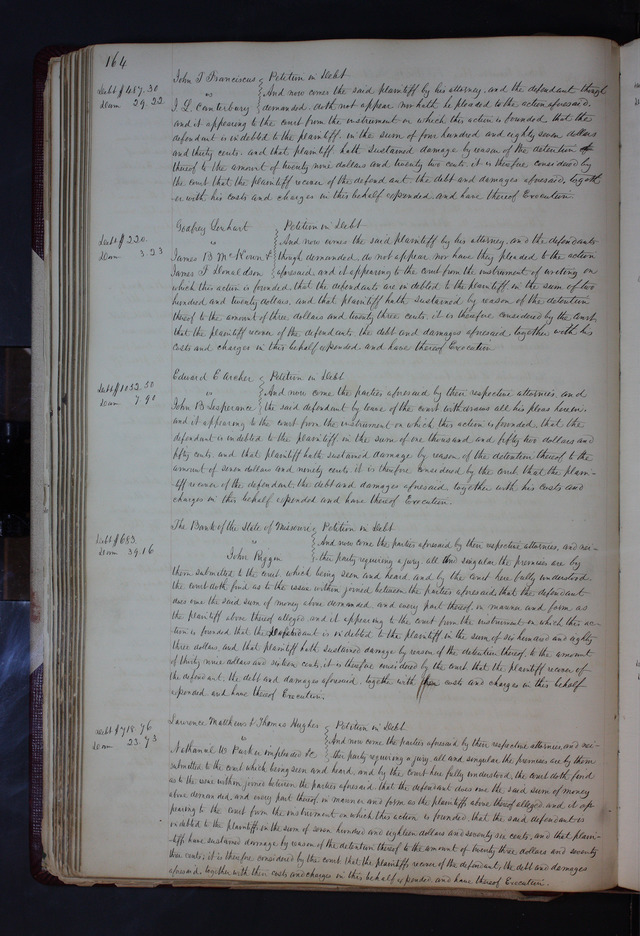 164
John T Franciscus } Petition in Debt
Debt $487.30
Dam 29.22
vs } And now comes the said plaintiff by his attorney, and the defendant though
J L Canterbury } demanded, doth not appear nor hath he pleaded to the action aforesaid,
and it appearing to the court from the instrument on which this action is founded that the
defendant is indebted to the plaintiff in the sum of four hundred and eighty seven dollars
and thirty cents, and that plaintiff hath sustained damage by reason of the detention
thereof to the amount of twenty nine dollars and twenty two cents it is therefore considered by
the court that the plaintiff recover of the defendant the debt and damages aforesaid, togeth
er with his costs and charges in this behalf expended and have thereof Execution
Godfrey Lenhart } Petition in Debt
Debt $220.
Dam 3.23
vs } And now comes the said plaintiff by his attorney, and the defendants
James B McKown & } though demanded, do not appear nor have they pleaded to the action
James T Donaldson } aforesaid, and it appearing to the court from the instrument of writing on
which this action is founded, that the defendants are indebted to the plaintiff in the sum of two
hundred and twenty dollars, and that plaintiff hath sustained by reason of the detention
thereof to the amount of three dollars and twenty three cents, it is therefore considered by the court,
that the plaintiff recover of the defendants, the debt and damages aforesaid, together with his
costs and charges in this behalf expended and have thereof Execution
Edward E Archer } Petition in Debt
Debt $1052.50
Dam 7.90
vs } And now come the parties aforesaid by their respective attornies, and
John B Lesperance } the said defendant by leave of the court withdraws all his pleas herein,
and it appearing to the court from the instrument on which this action is founded, that the
defendant is indebted to the plaintiff in the sum of one thousand and fifty two dollars and
fifty cents, and that plaintiff hath sustained damage by reason of the detention thereof, to the
amount of seven dollars and ninety cents, it is therefore considered by the court that the plain-
tiff recover of the defendant the debt and damages aforesaid, together with his costs and
charges in this behalf expended and have thereof Execution.
The Bank of the State of Missouri } Petition in Debt
Debt $683.
Dam 39.16
vs } And now come the parties aforesaid by their respective attornies, and nei-
John Biggin } ther party requiring a jury, all and singular the premises are by
them submitted to the court, which being seen and heard, and by the court here fully understood
the court doth find as to the issue within joined between the parties aforesaid, that the defendant
does owe the said sum of money above demanded and every part thereof, in manner and form as
the plaintiff above thereof alleged and it appearing to the court from the instrument on which this ac-
tion is founded, that the defendant is indebted to the plaintiff in the sum of six hundred and eighty
three dollars, and that plaintiff hath sustained damage by reason of the detention thereof, to the amount
of thirty nine dollars and sixteen cents, it is therefore considered by the court that the plaintiff recover of
the defendant, the debt and damages aforesaid, together with their costs and charges in this behalf
expended, and have thereof Execution.
Lawrence Matthews & Thomas Hughes } Petition in Debt
Debt $718.76
Dam 23.73
vs } And now come the parties aforesaid by their respective attornies, and nei-
Nathaniel W Parker impleaded &c } ther party requiring a jury, all and singular the premises are by them
submitted to the court which being seen and heard, and by the court here fully understood, the court doth find
as to the issue within joined between the parties aforesaid, that the defendant does owe the said sum of money
above demanded, and every part thereof in manner and form as the plaintiff above thereof alleged and it ap-
pearing to the court from the instrument on which this action is founded, that the said defendant is
indebted to the plaintiffs in the sum of seven hundred and eighteen dollars and seventy six cents, and that plain-
tiffs have sustained damage by reason of the detention thereof to the amount of twenty three dollars and seventy
three cents, it is therefore considered by the court that the plaintiffs, recover of the defendant, the debt and damages
aforesaid, together with their costs and charges in this behalf expended and have thereof Execution.